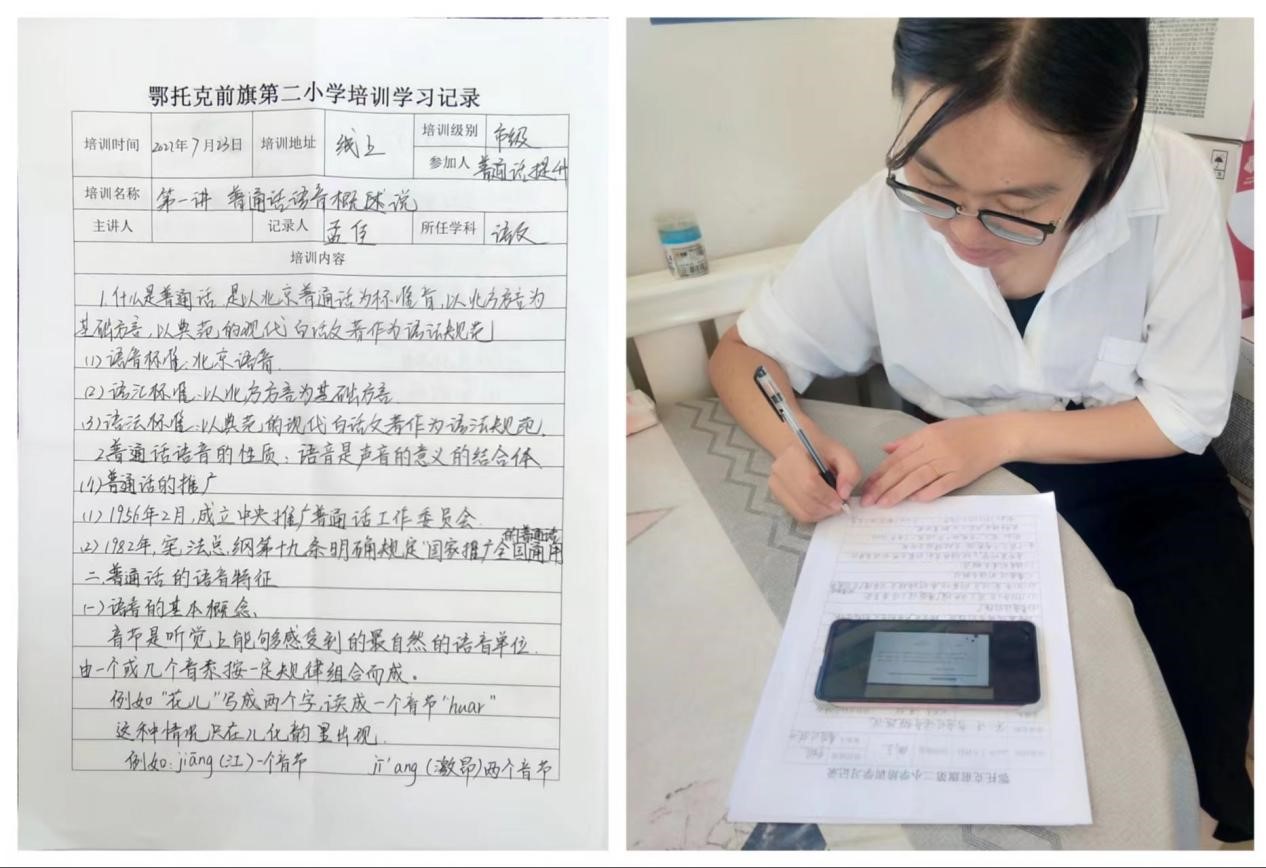 鄂托克前旗第二小学培训学习记录
培训时间 2022年7月23日 培训地址 线上 培训级别 市级
参加人 普通话提升
培训名称 第一讲 普通话语音概述说
主讲人 记录人 孟佳 所任学科 语文
培训内容
1.什么是普通话 是以北京普通话为标准音,以北方方言为
基础方言,以典范的现代白话文著作为语法规范
(1)语音标准:北京语音.
(2)语汇标准:以北方方言为基础方言
(3)语法标准:以典范的现代白话文著作为语法规范.
2.普通话语音的性质:语音是声音的意义的结合体
(4)普通话的推广
(1)1956年2月,成立中央推广普通话工作委员会.
(2)1982年,宪法总纲第十九条明确规定"国家推广全国通用
的普通话
二.普通话的语音特征
(一)语音的基本概念、
音节是听觉上能够感受到的最自然的语音单位.
由一个或几个音素按一定规律组合而成。
例如"花儿"写成两个字,读成一个音节"huar"
这种情况只在儿化韵里出现.
例如:jiāng(江)一个音节 ji'ang(激昂)两个音节
鄂托克前旗第二小学培训学习记录